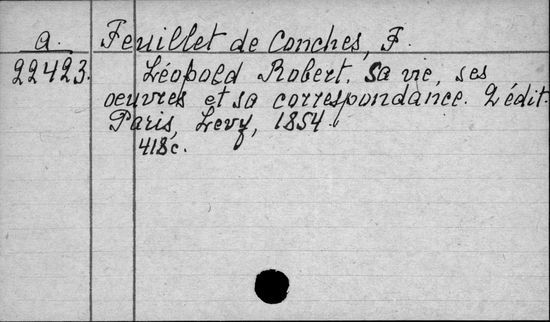 a. Feuillet de Conches, F.
22423. Léopold Robert, sa vie, ses
oeuvres et sa correspondance. 2 édit.
Paris, Levy, 1854.
418c.